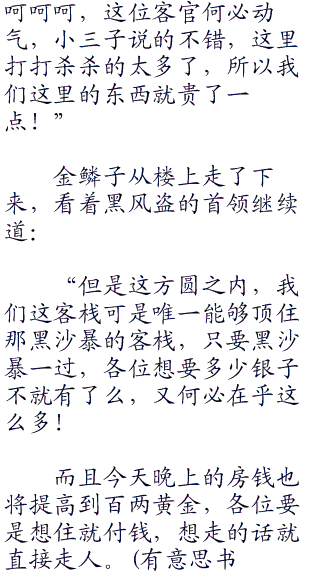 呵呵呵，这位客官何必动
气，小三子说的不错，这里
打打杀杀的太多了，所以我
们这里的东西就贵了一
点！”
金鳞子从楼上走了下
来，看着黑风盗的首领继续
道：
“但是这方圆之内，我
们这客栈可是唯一能够顶住
那黑沙暴的客栈，只要黑沙
暴一过，各位想要多少银子
不就有了么，又何必在乎这
么多！
而且今天晚上的房钱也
将提高到百两黄金，各位要
是想住就付钱，想走的话就
直接走人。(有意思书